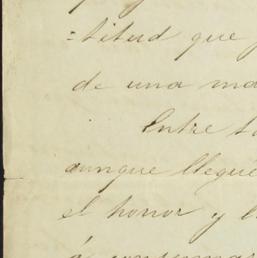 =titud que
de una ma
Entre t
aunque llegue
el honor y l